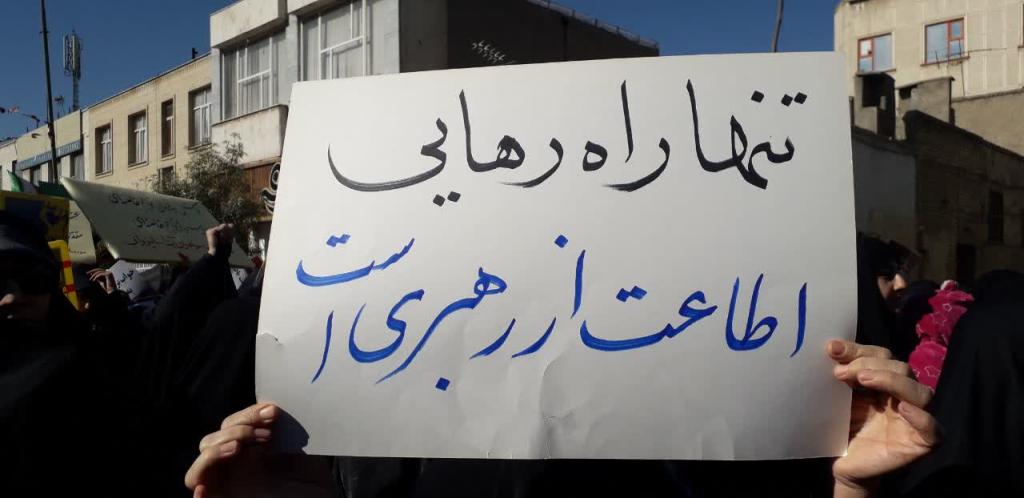 تنها راه رهایی
اطاعت از رهبری است